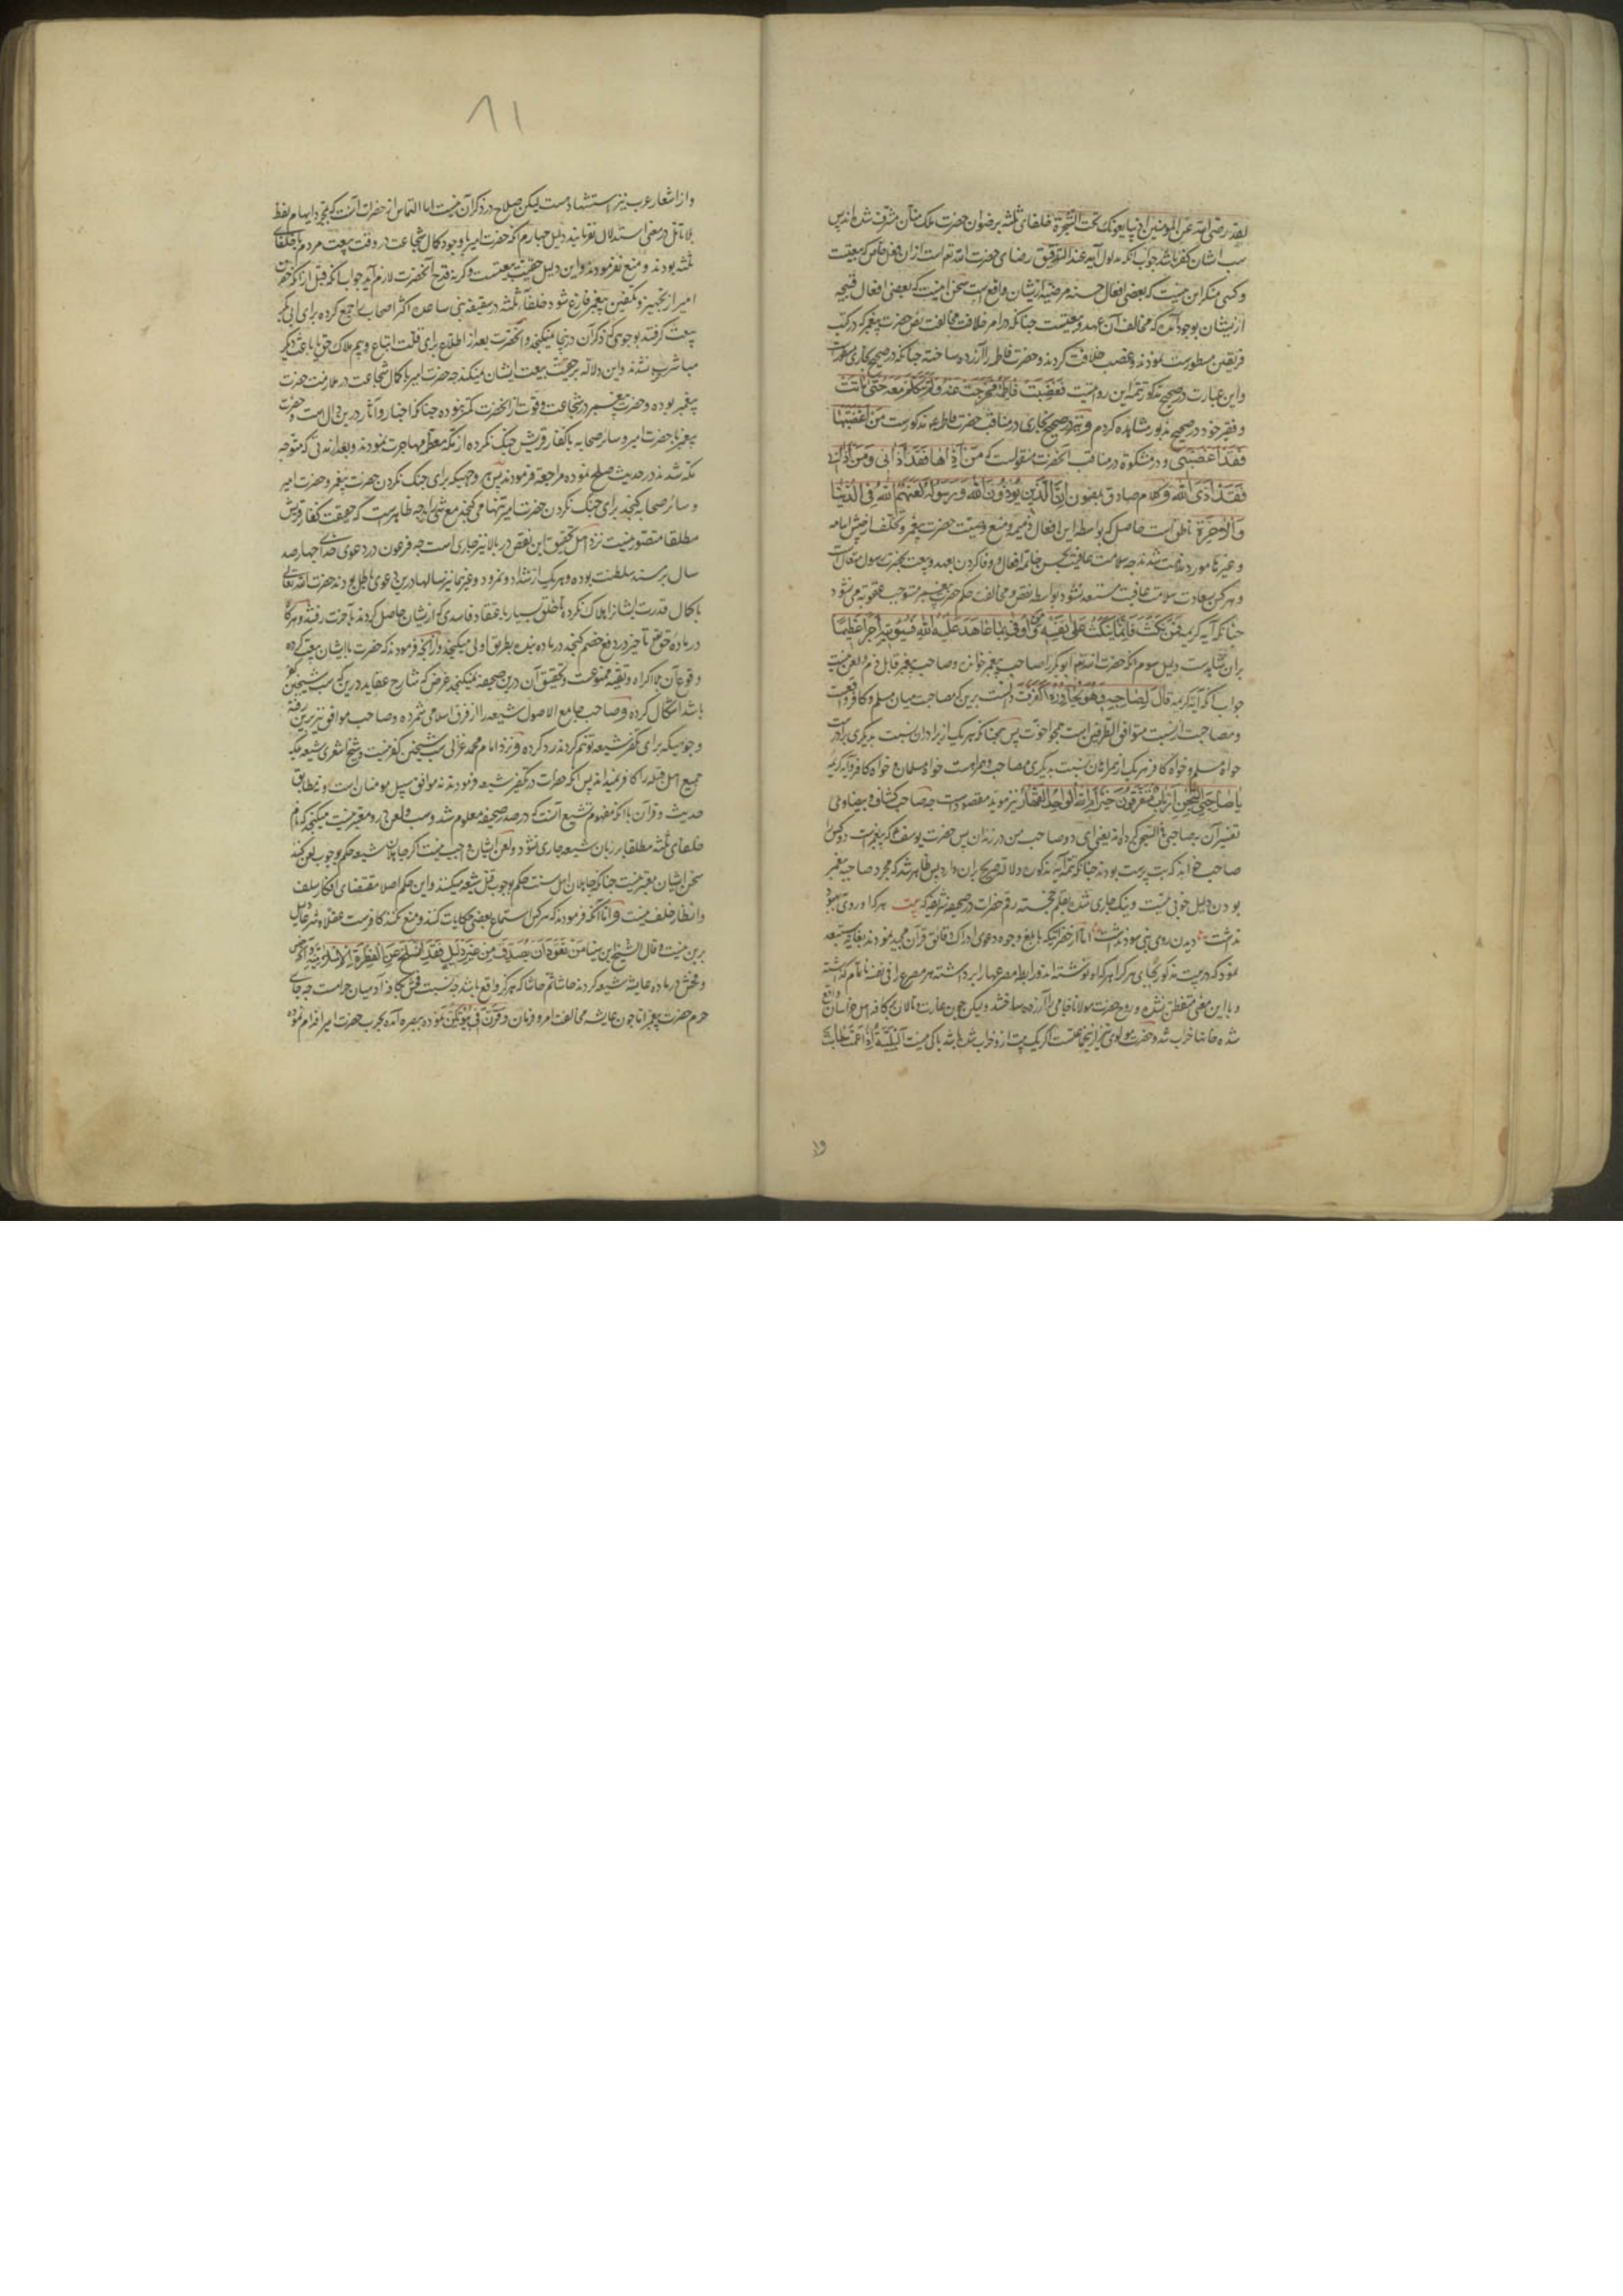 لقد رضی الله عن المؤمنین اذ یبایعونک تحت الشجرة خلفای ثلثه برضوان حضرت ملک منان مشرف شده اند پس
سب ایشان کفر باشد جواب آنکه مدلول آیه عند التدقیق رضای حضرت الله تعالی است ازان فعل خاص که بیعتست
و کسی منکر این نیست که بعضی افعال حسنه مرضیه از ایشان واقع است سخن اینست که بعضی افعال قبیحه
از ایشان بوجود آمده که مخالف آن عهد و بیعتست چنانکه در امر خلافت مخالفت نص حضرت پیغمبر که در کتب
فریقین مسطورست نمودند و غصب خلافت کردند و حضرت فاطمه را آزرده ساختند چنانکه در صحیح بخاری مذکورست
و این عبارت در صحیح مذکور تتمه این روایتست فغضبت فاطمة فهجرت عنه ولم تتکلم معه حتی ماتت
و فقیر خود در صحیح مذبور مشاهده کردم و نیز در صحیح بخاری در مناقب حضرت فاطمه مذکورست من اغضبها
فقد اغضبنی و در مشکوة در مناقب آنحضرت منقول است که من آذاها فقد آذانی ومن آذانی
فقد آذی الله و کلام صادق بمضمون ان الذین یؤذون الله ورسوله لعنهم الله فی الدنیا
والآخرة ناطق است حاصل که بواسطه این افعال ذمیمه و منع وصیت حضرت پیغمبر و تخلف از جیش اسامه
و غیرها مورد مذمت شدند چه سلامت عاقبت بحسن خاتمه افعال و وفا کردن بعهد و بیعت حضرت رسول متعال است
و هر کس بسعادت سلامت عاقبت مستسعد نشود بواسطه نقض و مخالفت حکم حضرت پیغمبر مستوجب عقوبة می شود
چنانکه آیه کریمه فمن نکث فانما ینکث علی نفسه ومن اوفی بما عاهد علیه الله فسیؤتیه اجرا عظیما
بران شاهدست دلیل سوم آنکه حضرت الله تعالی ابوبکر را صاحب پیغمبر خوانده و صاحب پیغمبر قابل ذم و لعن نیست
جواب آنکه آیه کریمه قال لصاحبه وهو یحاوره اکفرت دالست برین که مصاحبت میان مسلم و کافر واقعست
و مصاحبت از نسبت متوافق الطرفین است همچو اخوت پس همچنانکه هر یک از برادران نسبت بدیگری برادرست
خواه مسلم و خواه کافر هر یک از همراهان نسبت بدیگری مصاحب و همراهست خواه مسلمان و خواه کافر و آیه کریمه
یا صاحبی السجن أارباب متفرقون خیر ام الله الواحد القهار نیز موید مقصودست چه صاحب کشاف و بیضاوی
تفسیر آن بصاحبی فی السجن کرده اند یعنی ای دو صاحب من در زندان پس حضرت یوسف که پیغمبرست دو کس را
صاحب خوانده که بت پرست بودند چنانکه تتمه آیه مذکوره دلالة صریح بران دارد پس ظاهر شد که مجرد صاحب پیغمبر
بودن دلیل خوبی نیست و نیک جاری شده بقلم خجسته رقم حضرات در صحیفه شریفه که بیت هر کرا روی بهبود
نداشت دیدن روی نبی سود نداشت اما از حضراتیکه بابلغ وجوه دعوی ادراک دقائق قرآن مجید نمودند بغایت مستبعد
نمود که در بیت مذکور بجای هر کرا هر که را او نوشته اند و رابطه مصرعها را برداشته هر مصرع را فی نفسه ناتمام گذاشته
و باین معنی متفطن نشده و روح حضرت مولانا جامی را آزرده ساختند ولیکن چون بغارت و تالان کافه اهل خراسان واقع
شده خانها خراب شد و حضرت مولوی نیز از آنجماعتست اگر یک بیت از و خراب شده باشد باکی نیست البلیة اذا عمت طابت
۸۱
و از اشعار عرب نیز استشهاد هست لیکن صلاح در ذکر آن نیست اما التماس از حضرات آنست که بمجرد ایهام لفظ
بلا تامل در معنی استدلال نفرمایند دلیل چهارم آنکه حضرت امیر با وجود کمال شجاعت در وقت بیعت مردم با خلفای
ثلثه بودند و منع نفرمودند و این دلیل حقیقت بیعتست و گرنه قدح آنحضرت لازم آید جواب آنکه قبل از آنکه حضرت
امیر از تجهیز و تکفین پیغمبر فارغ شود خلفاء ثلثه در سقیفه بنی ساعده اکثر اصحاب را جمع کرده برای ابی بکر
بیعت گرفتند بوجوهی که ذکر آن درینجا نمیگنجد و آنحضرت بعد از اطلاع برای قلت اتباع و بیم هلاک حق یا باعث دیگر
مباشر حرب نشدند و این دلالت بر حقیت بیعت ایشان نمیکند چه حضرت امیر با کمال شجاعت در ملازمت حضرت
پیغمبر بوده و حضرت پیغمبر در شجاعت و قوت از آنحضرت کمتر نبوده چنانکه اخبار و آثار درین دال است و حضرت
پیغمبر با حضرت امیر و سائر صحابه با کفار قریش جنگ نکرده از مکه معظمه مهاجرت نمودند و بعد از مدتی که متوجه
مکه شدند در حدیبیه صلح نموده مراجعة فرمودند پس هر وجهیکه برای جنگ نکردن حضرت پیغمبر و حضرت امیر
و سائر صحابه گنجد برای جنگ نکردن حضرت امیر تنها می گنجد مع شیء زاید چه ظاهرست که حقیت کفار قریش
مطلقا متصور نیست نزد اهل تحقیق این نقض در بالا نیز جاری است چه فرعون در دعوی خدائی چهار صد
سال بر مسند سلطنت بوده و هر یک از شداد و نمرود و غیرهما نیز سالها درین دعوی باطل بودند حضرت الله تعالی
با کمال قدرت ایشان را هلاک نکرده تا خلق بسیار با عتقاد فاسدی که از ایشان حاصل کردند بآخرت رفتند و هر گاه
در ماده حق تعالی تاخیر در دفع خصم گنجد در ماده بنده بطریق اولی میگنجد و آنچه فرمودند که حضرت با ایشان بیعت کرده
وقوع آن بلا اکراه و تقیه ممنوعست و تحقیق آن درین صحیفه نمیگنجد غرض که شارح عقاید درین که سب شیخین کفر
باشد اشکال کرده و صاحب جامع الاصول شیعه را از فرق اسلامی شمرده و صاحب مواقف نیز برین رفته
و جوهیکه برای تکفیر شیعه توهم کردند رد کرده و نزد امام محمد غزالی سب شیخین کفر نیست و شیخ اشعری شیعه بلکه
جمیع اهل قبله را کافر نمیداند پس آنکه حضرات در تکفیر شیعه فرمودند نه موافق سبیل مومنان است و نه مطابق
حدیث و قرآن با آنکه مفهوم تشیع آنست که در صدر صحیفه معلوم شد و سب و لعن درو معتبر نیست میگنجد که نام
خلفای ثلثه مطلقا بر زبان شیعه جاری نشود و لعن ایشان واجب نیست اگر جاهلان شیعه حکم بوجوب لعن کنند
سخن ایشان معتبر نیست چنانکه جاهلان اهل سنت حکم بوجوب قتل شیعه میکنند و این حکم اصلا مقتضای افکار سلف
و انظار خلف نیست و اما آنکه فرمودند که هر کس استماع بعضی حکایات کند و منع نکند کافرست عقلا و شرعا دلیل
برین نیست و قال الشیخ ابن سینا من تعود ان یصدق من غیر دلیل فقد انسلخ عن الفطرة الانسانیة و آنکه
و فحش در ماده عایشه بشیعه کردند حاشا ثم حاشا که هرگز واقع باشد چه نسبت فحش بکافه آدمیان حرامست چه جای
حرم حضرت پیغمبر اما چون عایشه مخالفت امر و فرمان وقرن فی بیوتکن نموده ببصره آمده بحرب حضرت امیر اقدام نموده